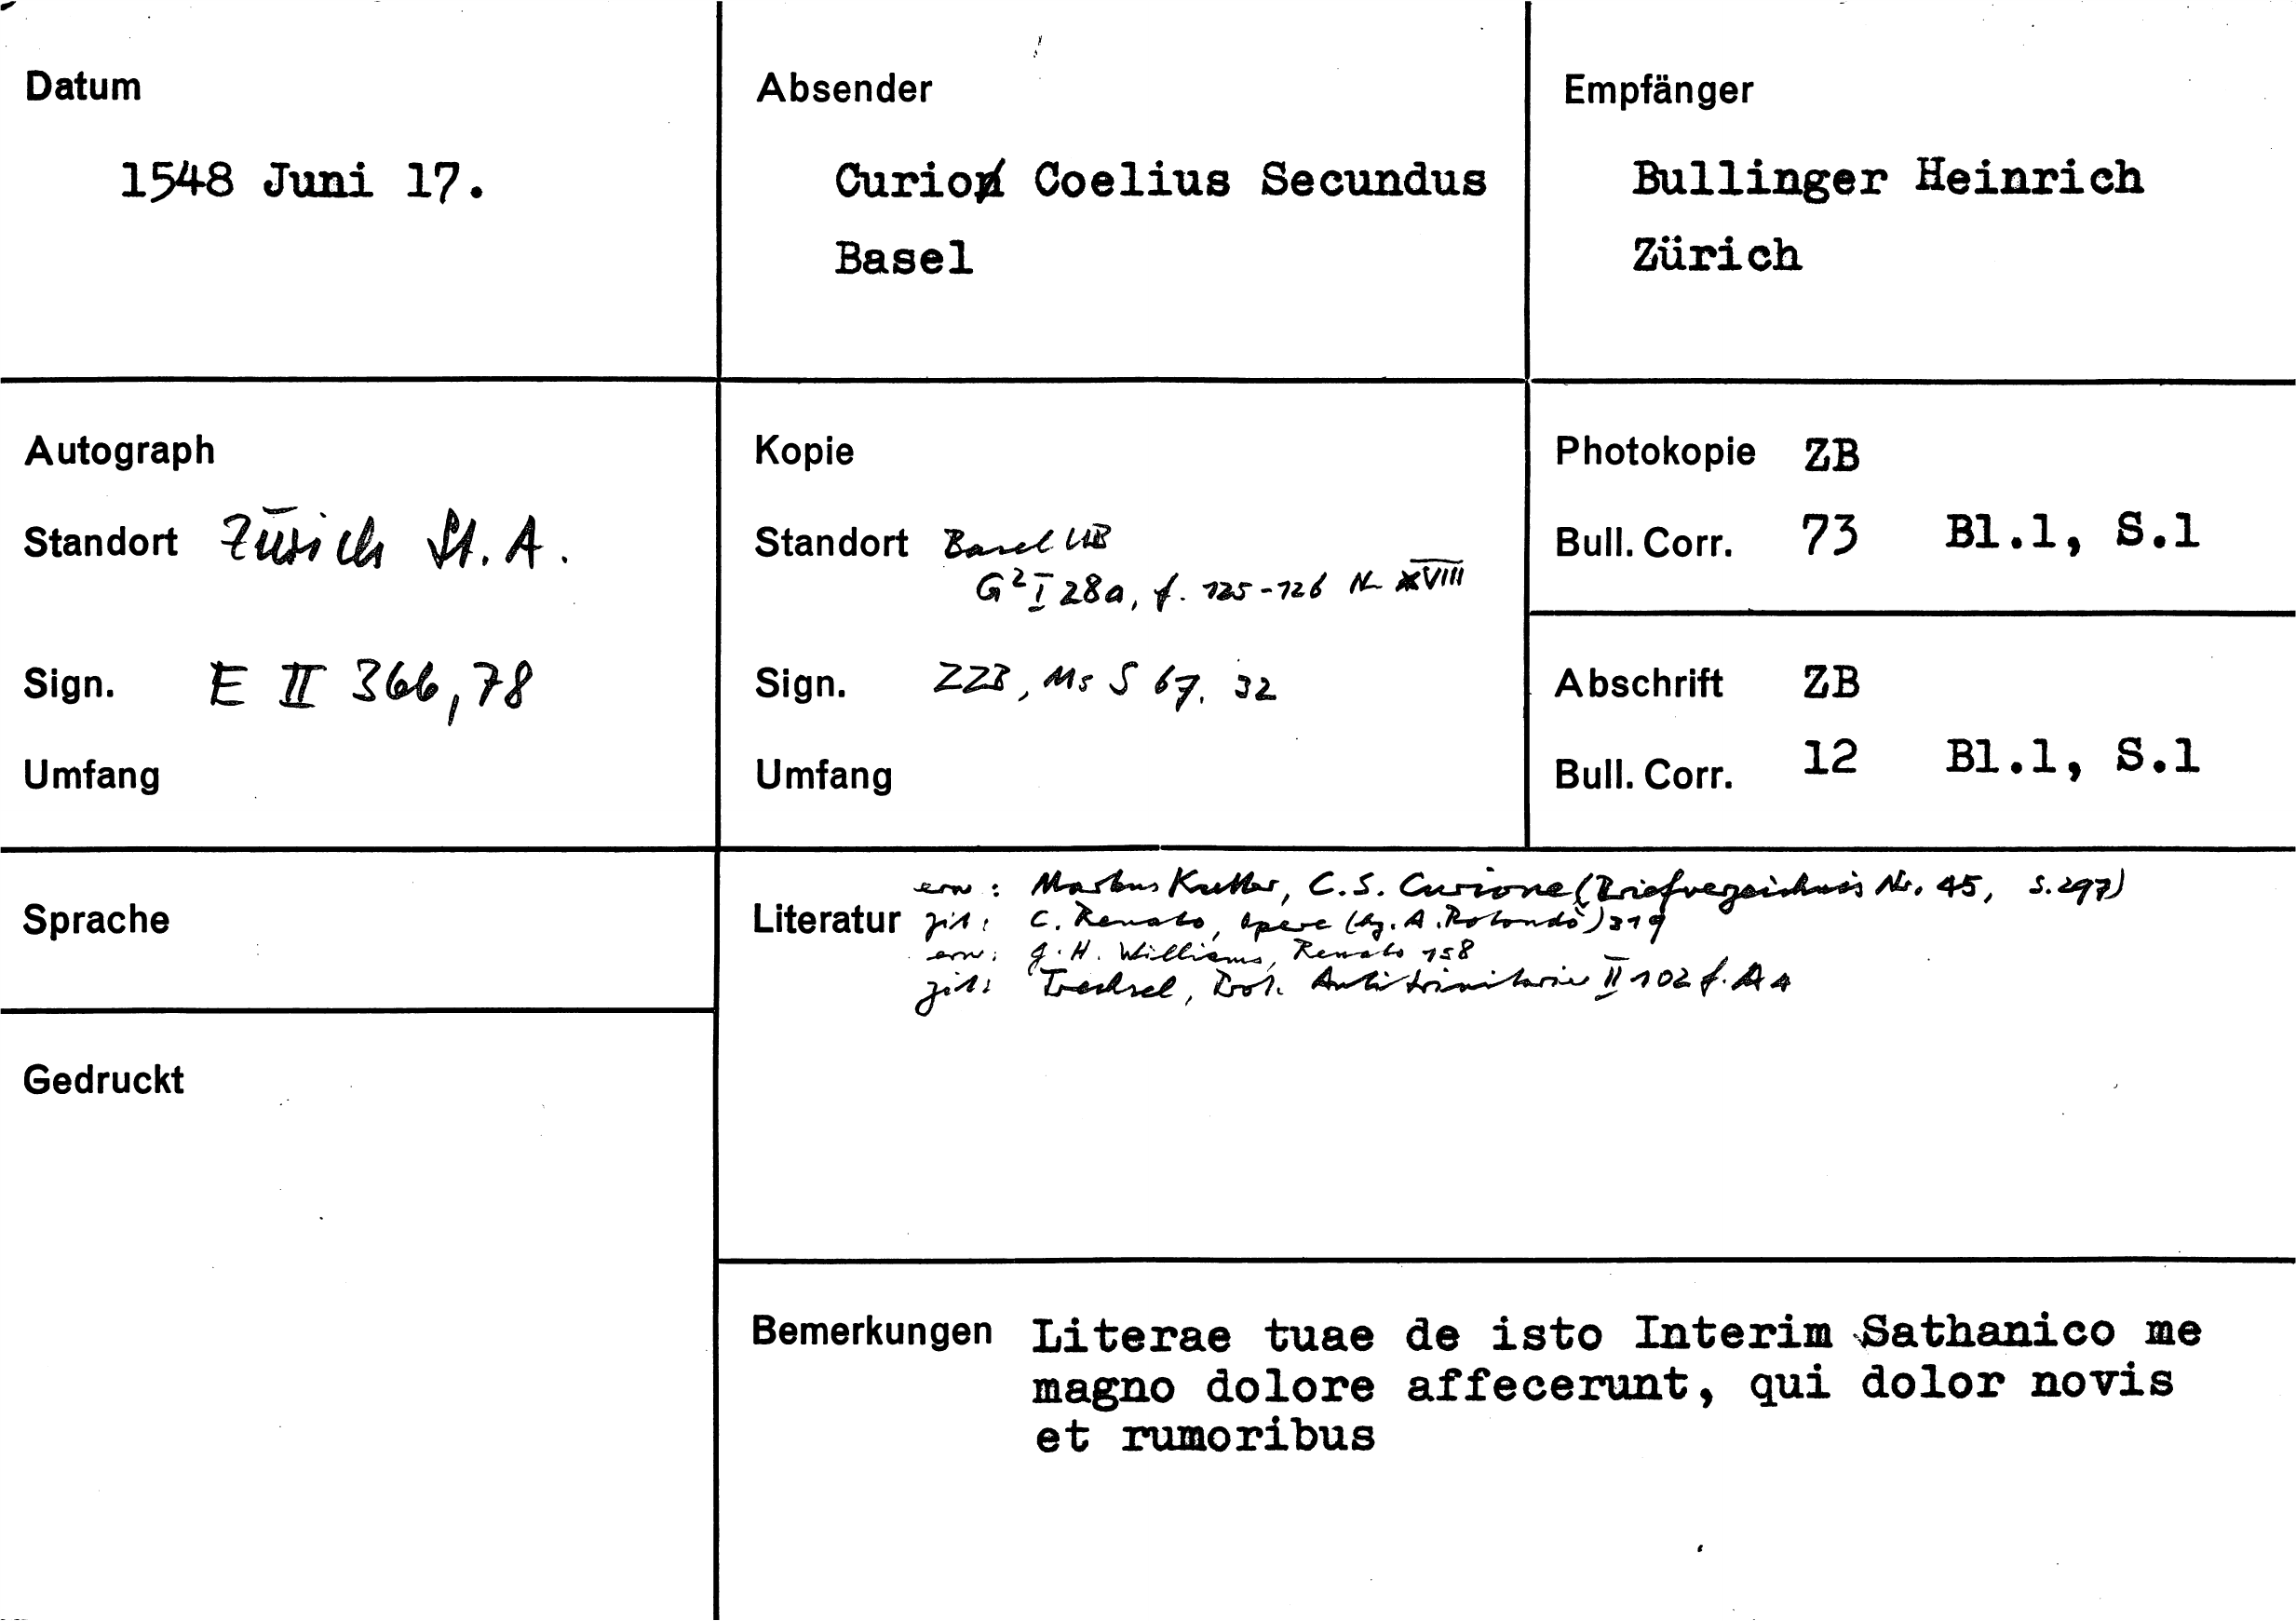 Datum
1548 Juni 17.
Absender
Curion Coelius Secundus
Basel
Empfänger
Bullinger Heinrich
Zürich
Autograph
Standort Zürich St. A.
Sign. E II 366,78
Umfang
Kopie
Standort Basel UB
G² I 28a, f. 125-126 N XVIII
Sign. ZZB, Ms S 67, 32
Umfang
Photokopie ZB
Bull. Corr. 73 Bl.1, S.1
Abschrift ZB
Bull. Corr. 12 Bl.1, S.1
Sprache
Gedruckt
erw: Markus Kutter, C.S. Curione (Briefverzeichnis Nr. 45, S. 297)
Literatur zit: C. Renato, Opere (hg. A. Rotondò) 319
erw: G.H. Williams, Renato 158
zit: Trechsel, Prot. Antitrinitarier II 102 f. A 4
Bemerkungen Literae tuae de isto Interim Sathanico me
magno dolore affecerunt, qui dolor novis
et rumoribus